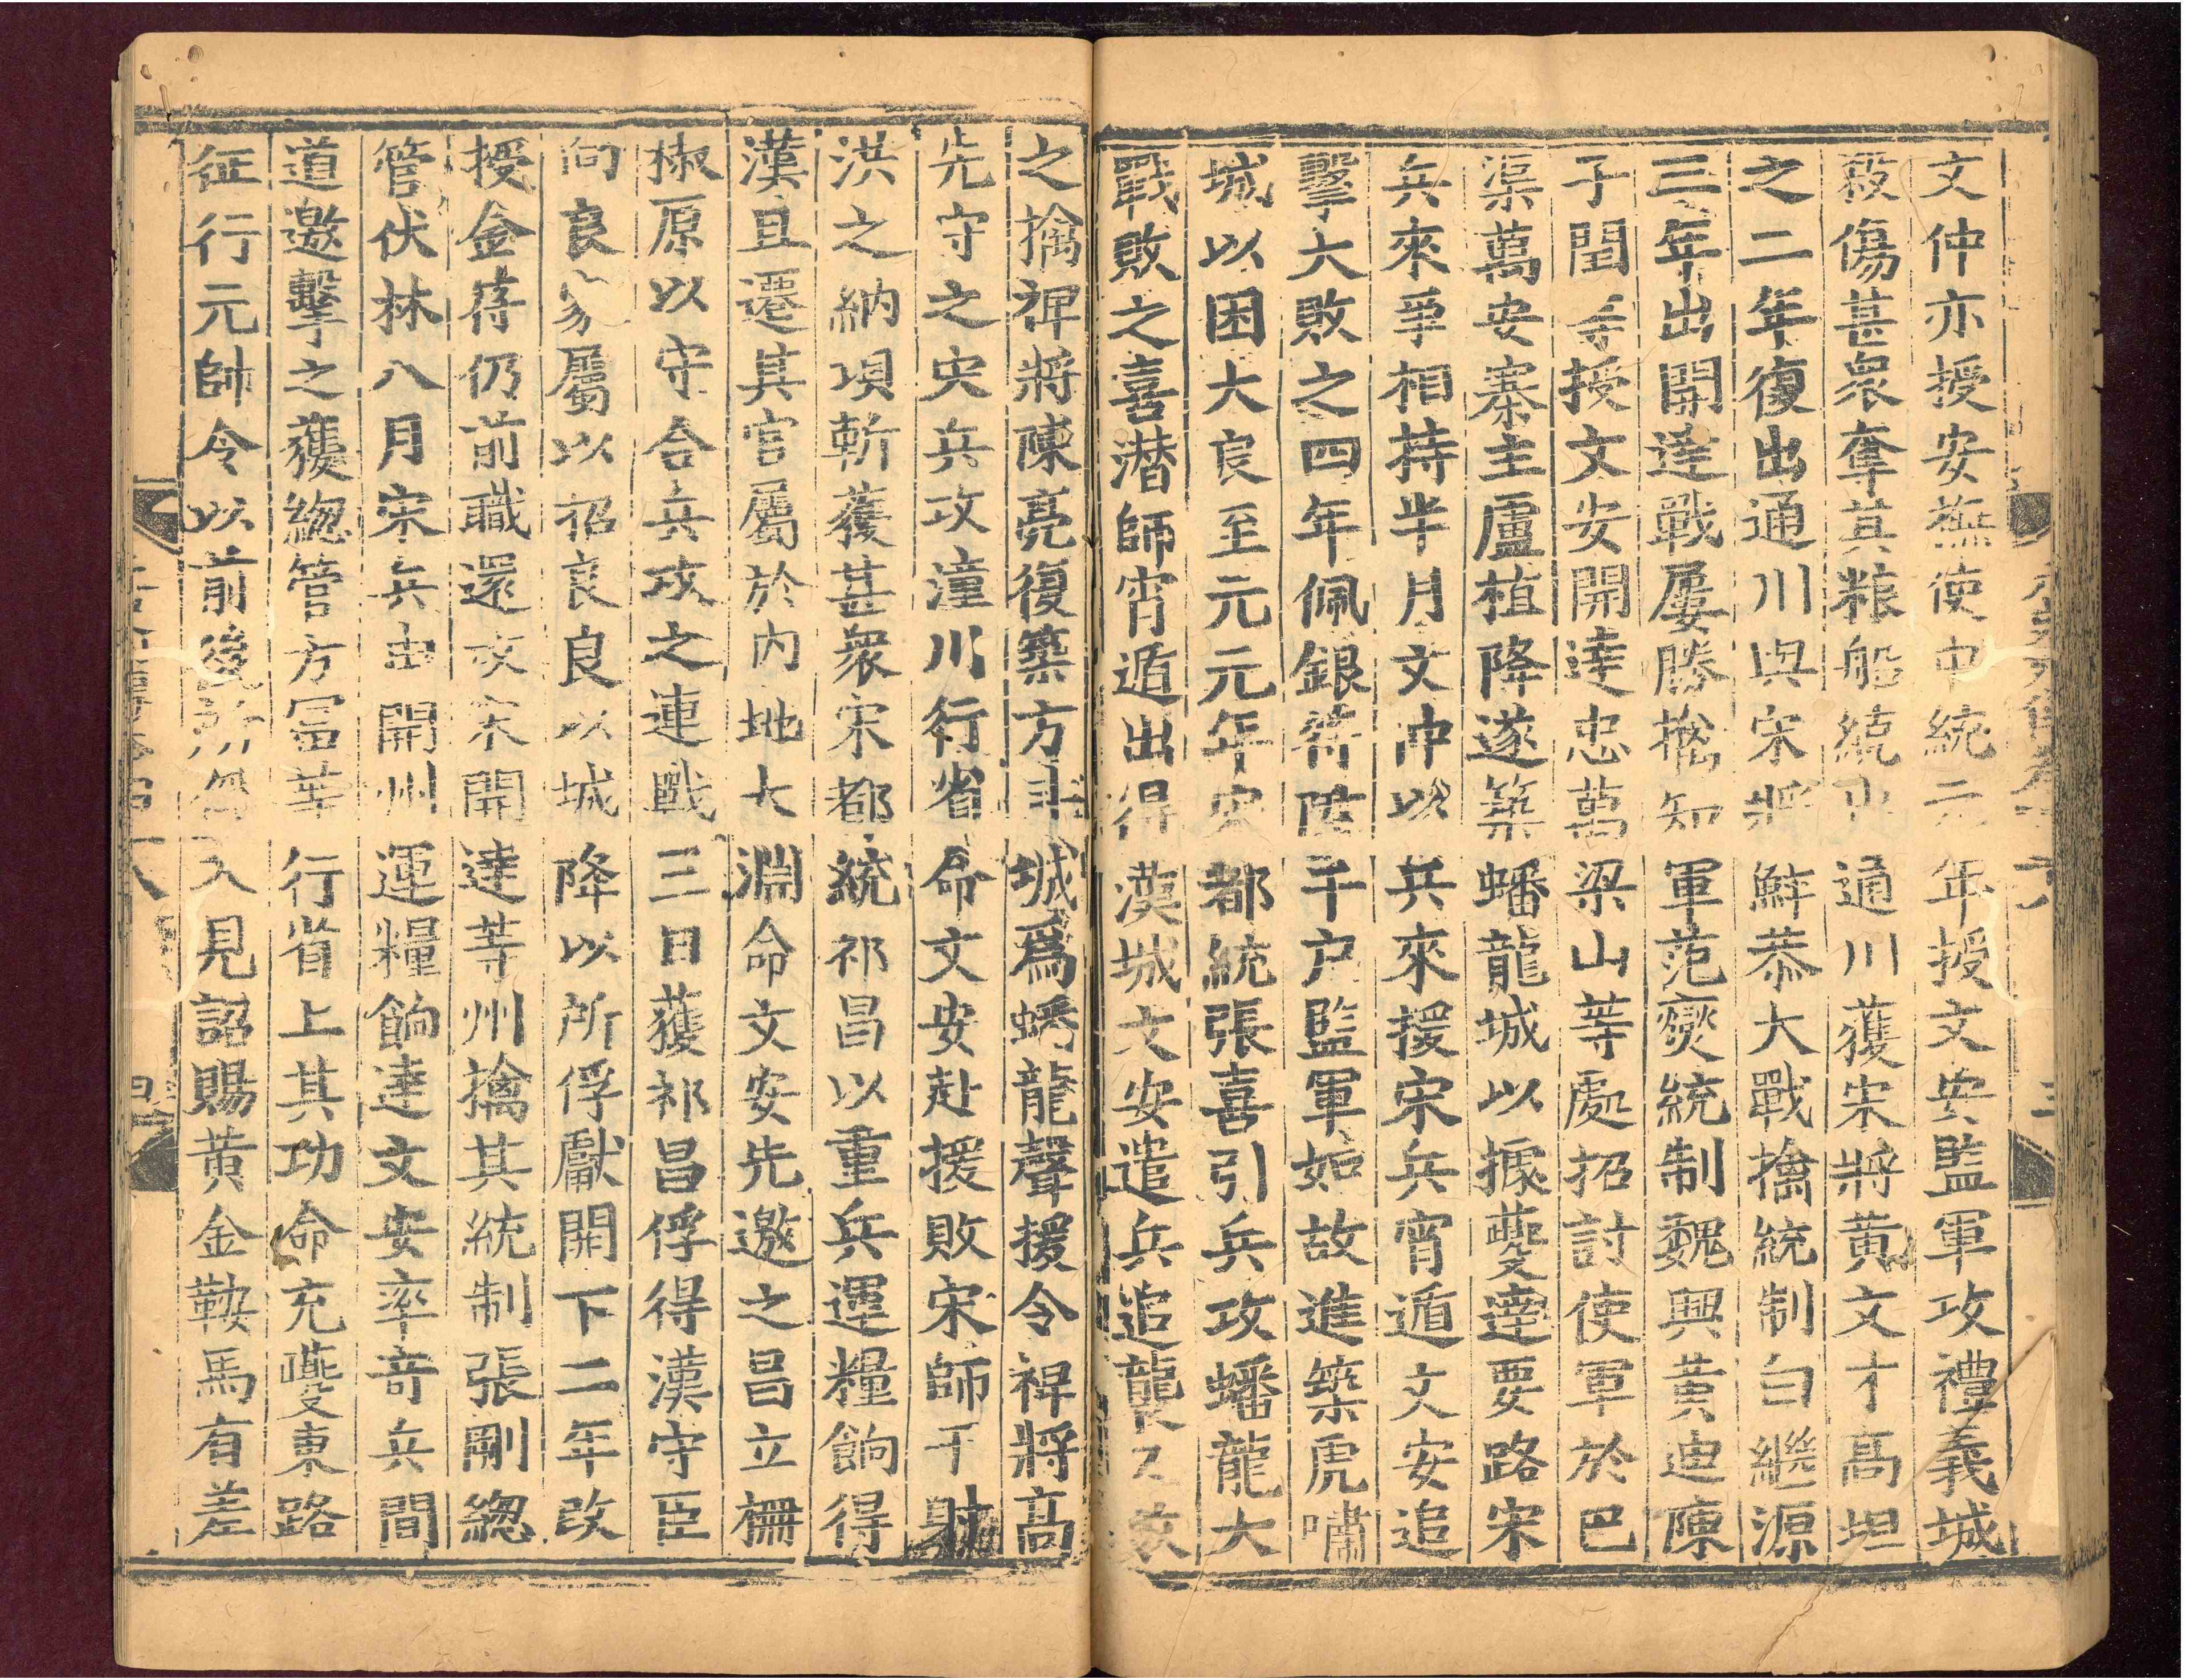 文仲亦授安撫使中統元年授文安監軍攻禮義城
殺傷甚衆奪其粮船統出通川獲宋將黃文才高坦
之二年復出通川與宋將鮮恭大戰擒統制白繼源
三年出開達戰屢勝擒知軍范燮統制魏興黃迪陳
子閏等授文安開達忠萬梁山等處招討使軍於巴
渠萬安寨主盧植降遂築蟠龍城以據夔達要路宋
兵來爭相持半月文冲以兵來援宋兵宵遁文安追
擊大敗之四年佩銀符陞千户監軍如故進築虎嘯
城以困大良至元元年宋都統張喜引兵攻蟠龍大
戰敗之喜潜師宵遁出得漢城文安遣兵追襲又敗
之擒裨將陳亮復築方斗城爲蟠龍聲援令裨將高
先守之宋兵攻潼川行省命文安赴援敗宋師于射
洪之納垻斬獲甚衆宋都統祁昌以重兵運糧餉得
漢且遷其官屬於内地大淵命文安先邀之昌立栅
椒原以守合兵攻之連戰三日獲祁昌俘得漢守臣
向良家屬以招良良以城降以所俘獻開下二年改
授金符仍前職還攻宋開達等州擒其統制張剛總
管伏林八月宋兵由開州運糧餉達文安率竒兵間
道邀擊之獲總管方冨等行省上其功命充夔東路
征行元帥令以前後所俘入見詔賜黄金鞍馬有差